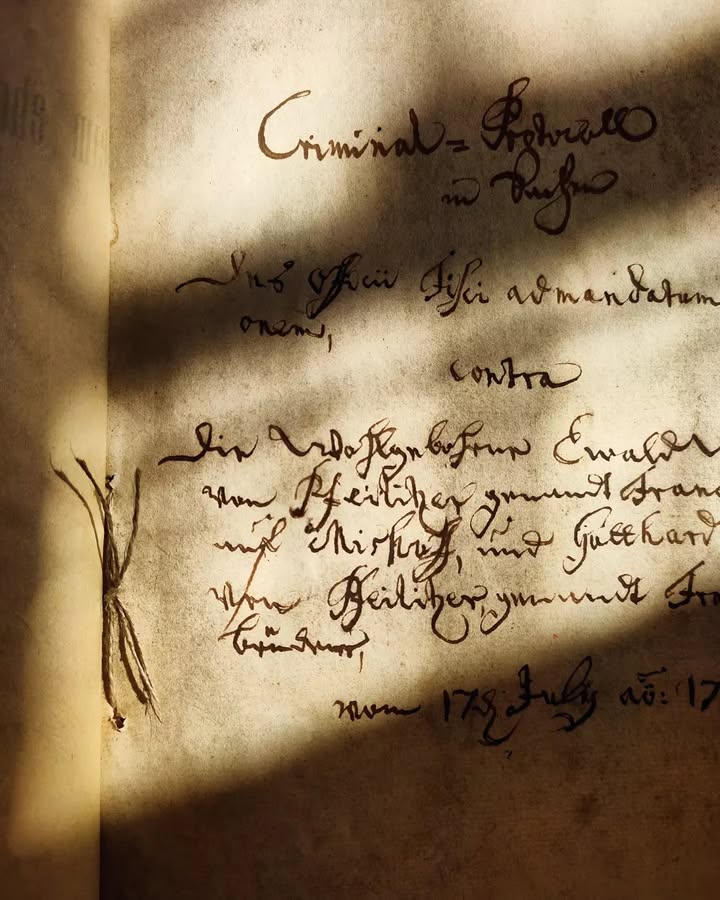 Criminal = Protocoll
in Sachen
Des Officii Fisci ad mandatum
onem,
contra
Die Wohlgebohrne Ewald
von Pfeilitzer genandt Franc
auf Mickof, und Gotthard
von Pfeilitzer, genandt Fra
brüdere,
vom July aõ: 17